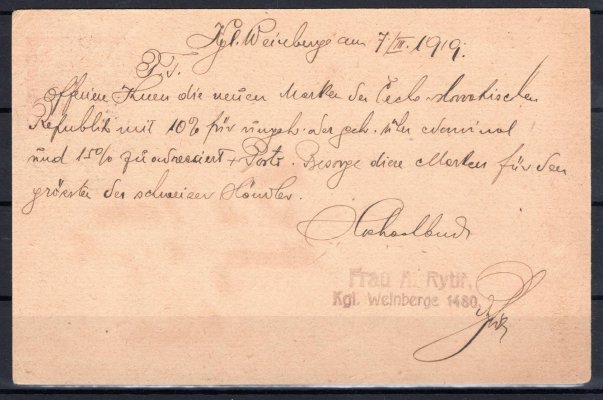 Kgl. Weinberge am 7/III. 1919.
P. T.
Offeriere Ihnen die neuen Marken der Čecho-slovakischen
Republik mit 10% für ungeb. oder geb. über nominal
und 15% zu adressiert + Porto. Besorge diese Marken für den
grössten der schweizer Händler.
Hochachtend
Frau A. Rytíř,
Kgl. Weinberge 1480.